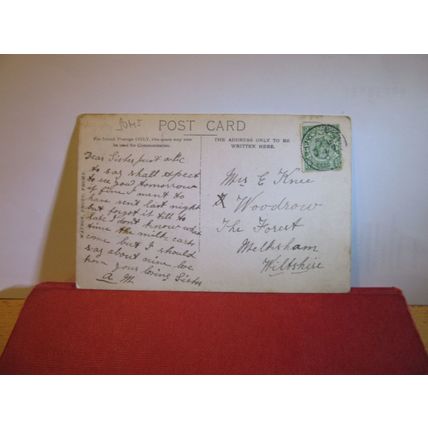 POST CARD
For Inland Postage ONLY, this space may now
be used for Communication.
THE ADDRESS ONLY TO BE
WRITTEN HERE.
Dear Sister just a line
to say shall expect
to see you tomorrow
if fine I went to
have sent last night
but forgot it till to
late I don't know what
time the milk carts
come but I should
say about nine love
from your loving Sister
A M
Mrs E Knee
X Woodrow
The Forest
Melksham
Wiltshire